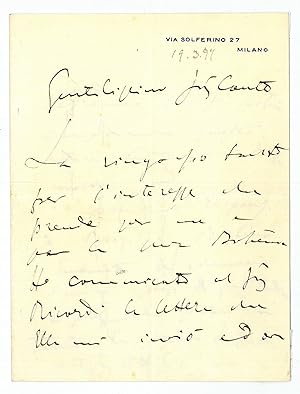 VIA SOLFERINO 27
MILANO
19.3.97
Gentilissimo Sig Conte
La ringrazio tanto
per l'interesse che
prende per me e
per la mia Bohème
Ho comunicato al Sig
Ricordi la lettera che
Ella mi inviò ed or